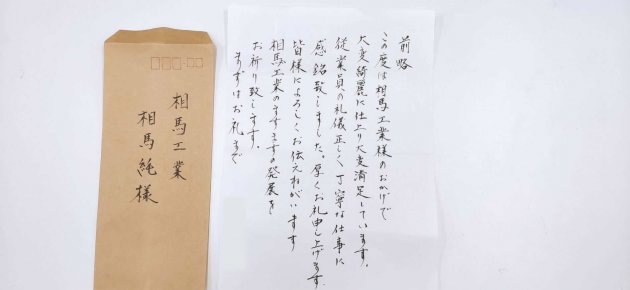 前略
この度は相馬工業様のおかげで
大変綺麗に仕上り大変満足しています。
従業員の礼儀正しく丁寧な仕事に
感銘致しました。厚くお礼申し上げます。
皆様によろしくお伝えねがいます
相馬工業のますますの発展を
お祈り致します。
まずはお礼まで
相馬工業
相馬純様